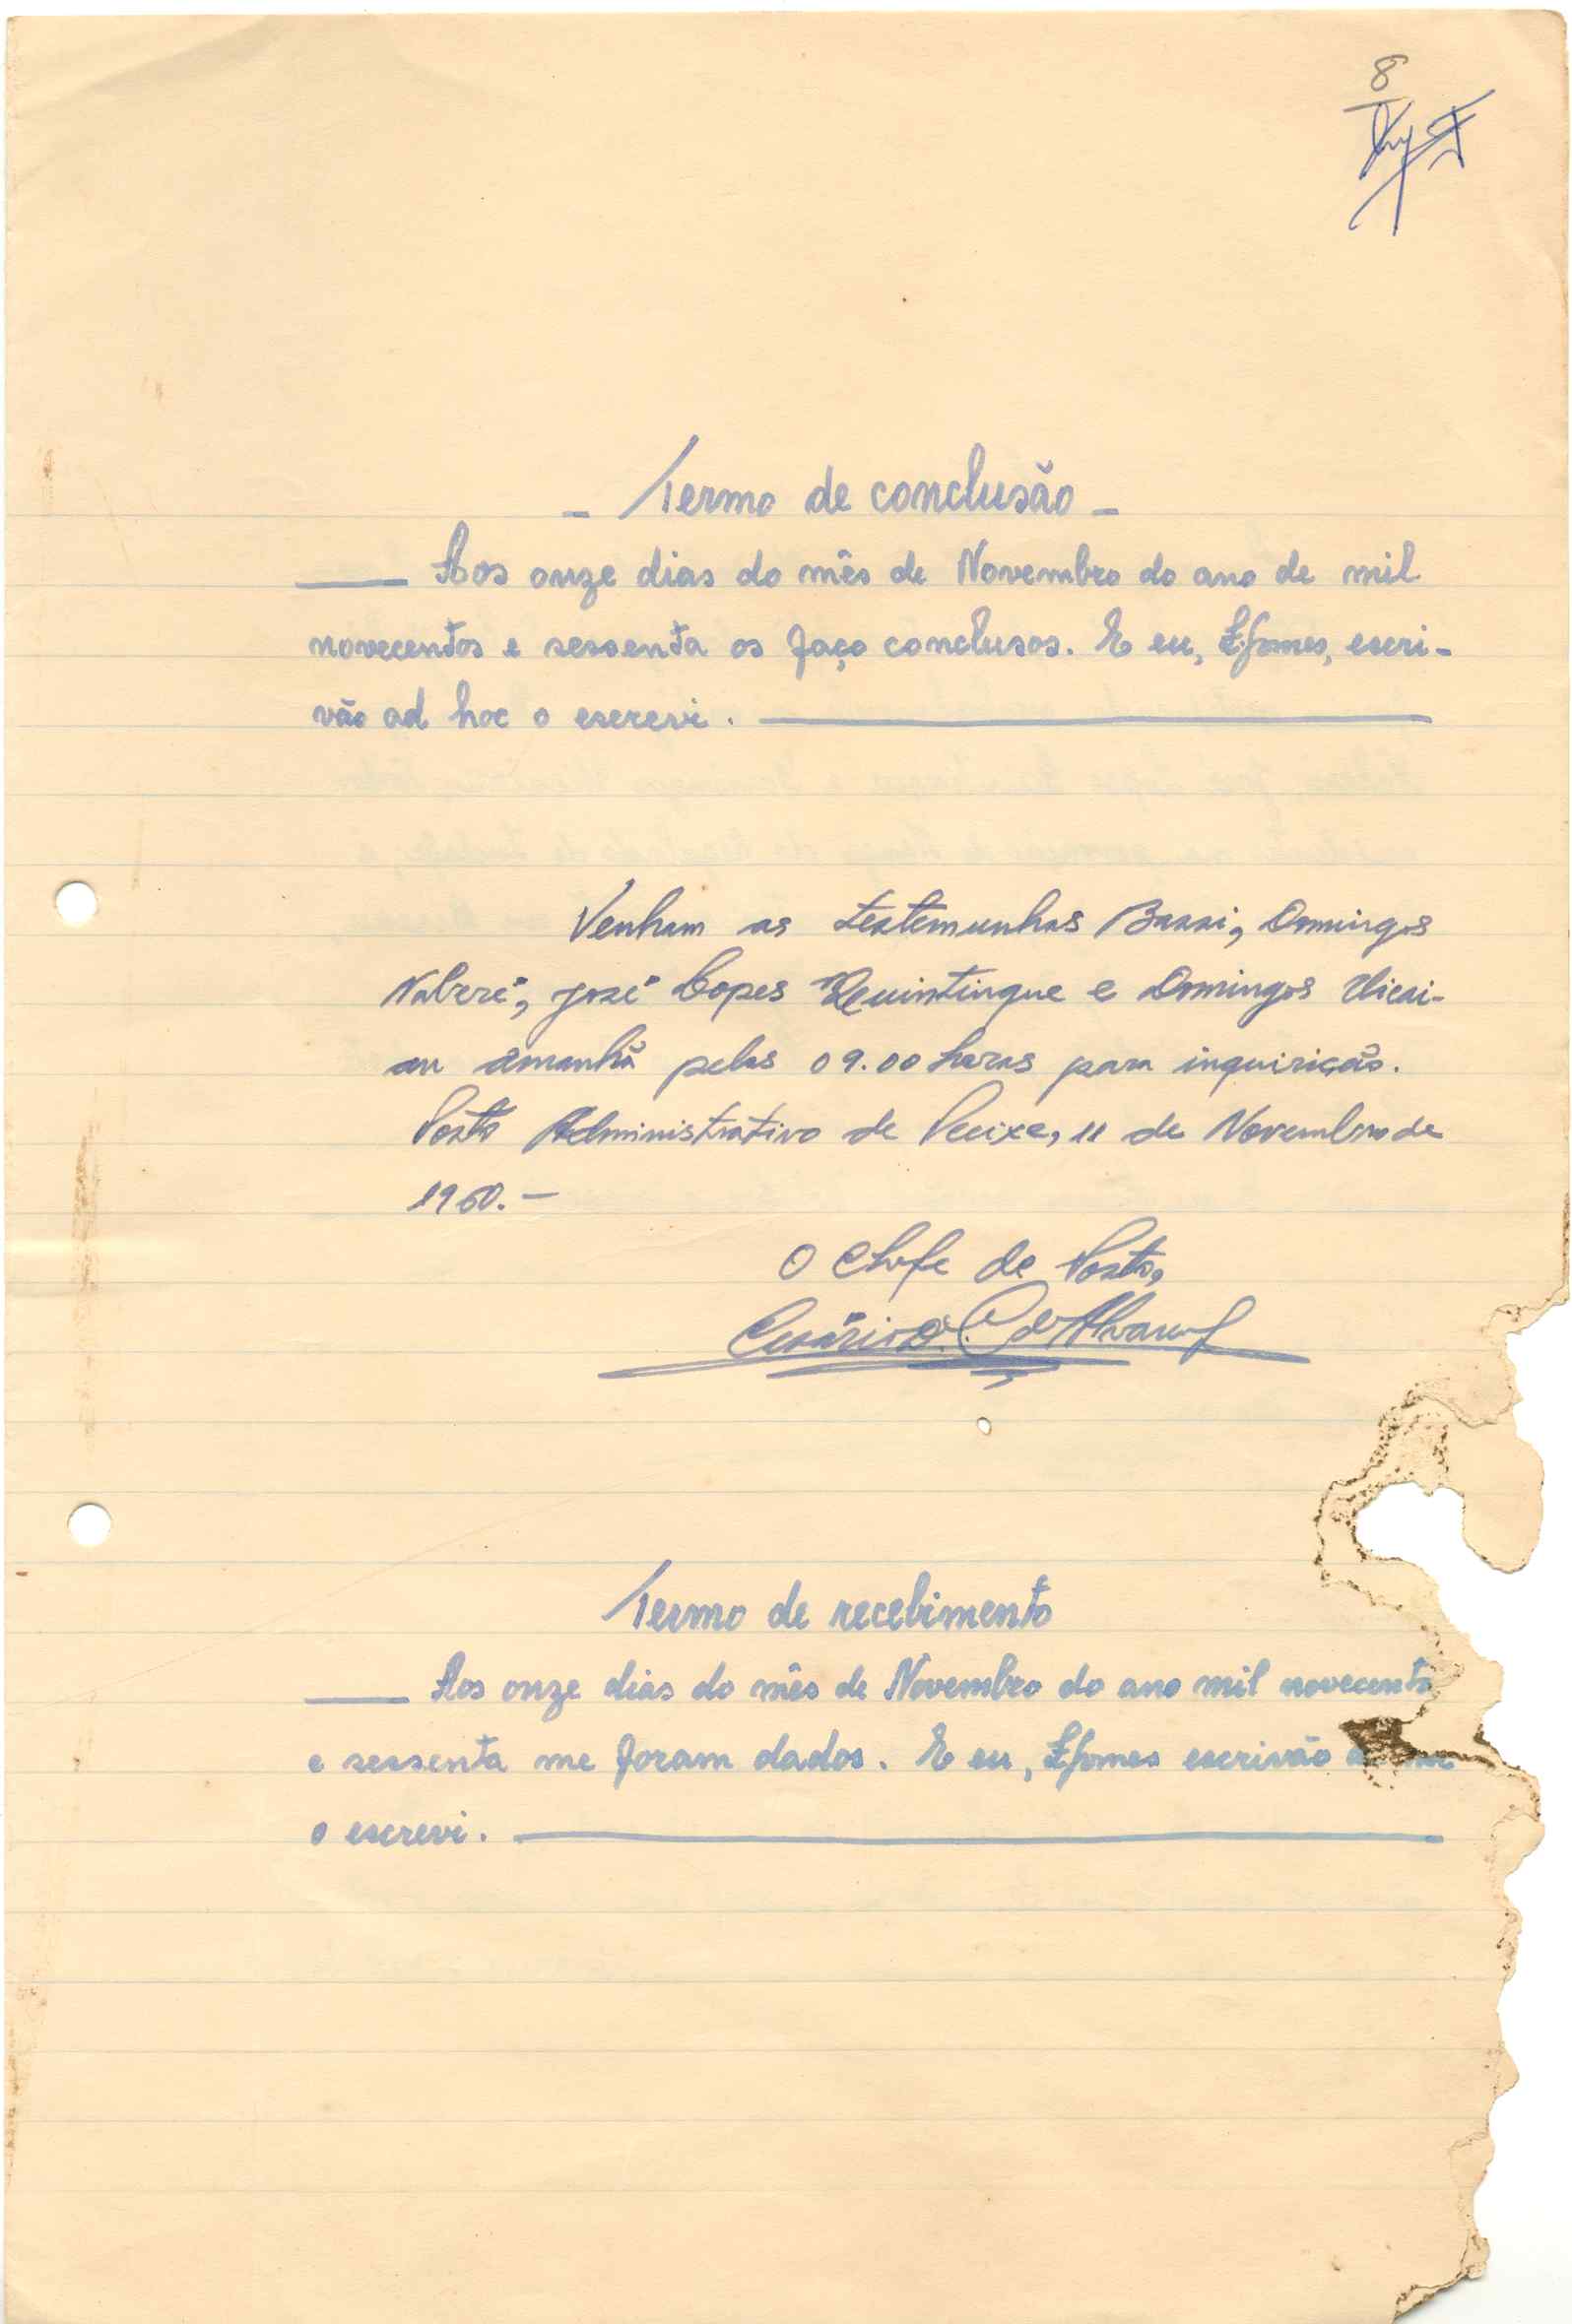 8
- Termo de conclusão -
Aos onze dias do mês de Novembro do ano de mil
novecentos e sessenta os faço conclusos. E eu, escri-
vão ad hoc o escrevi.
Venham as testemunhas Bassi, Domingos
Nabré, José Lopes e Domingos
amanhã pelas 09.00 horas para inquirição.
Posto Administrativo de Pecixe, 11 de Novembro de
1960.-
O Chefe de Posto,
Cesário
Termo de recebimento
Aos onze dias do mês de Novembro do ano mil novecentos
e sessenta me foram dados. E eu, escrivão
o escrevi.